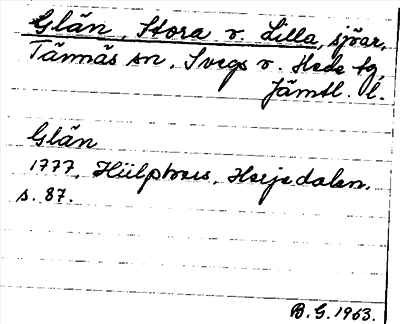 Glän, Stora o. Lilla, sjöar,
Tännäs sn, Svegs o. Hede tg,
Jämtl. l.
Glän
1777, Hülphers, Herjedalen.
s. 87.
B.G. 1963.